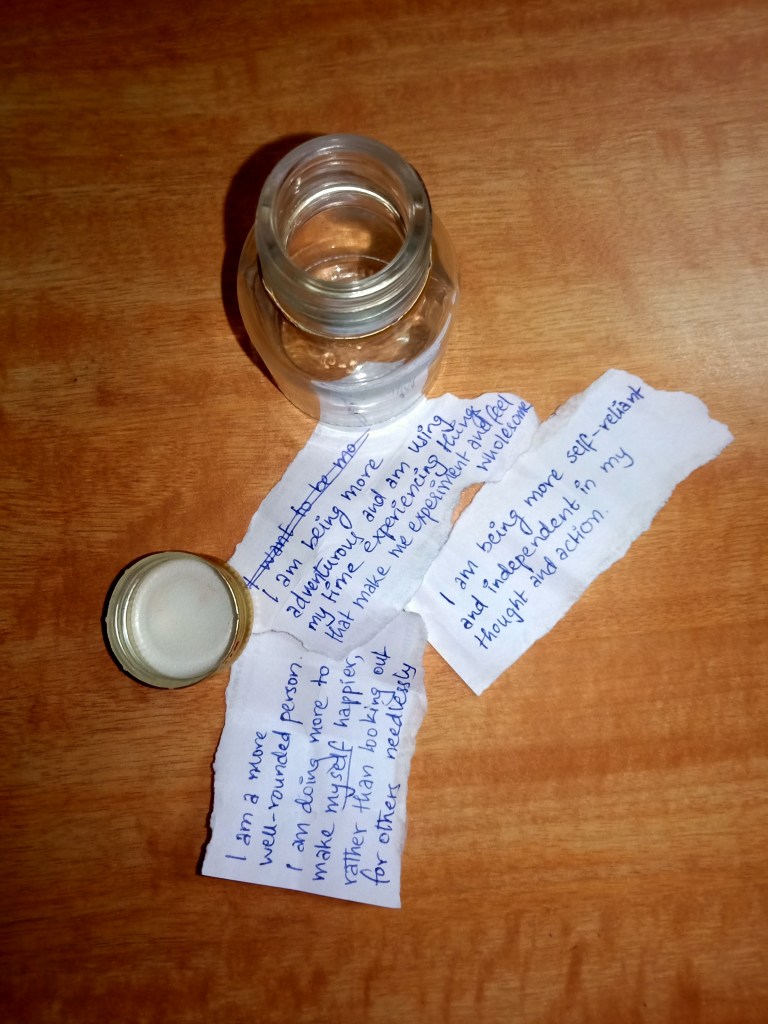 I want to be mo
I am being more
adventurous and am using
my time experiencing things
that make me experiment and feel
wholesome
I am being more self-reliant
and independent in my
thought and action.
I am a more
well-rounded person.
I am doing more to
make myself happier,
rather than looking out
for others needlessly